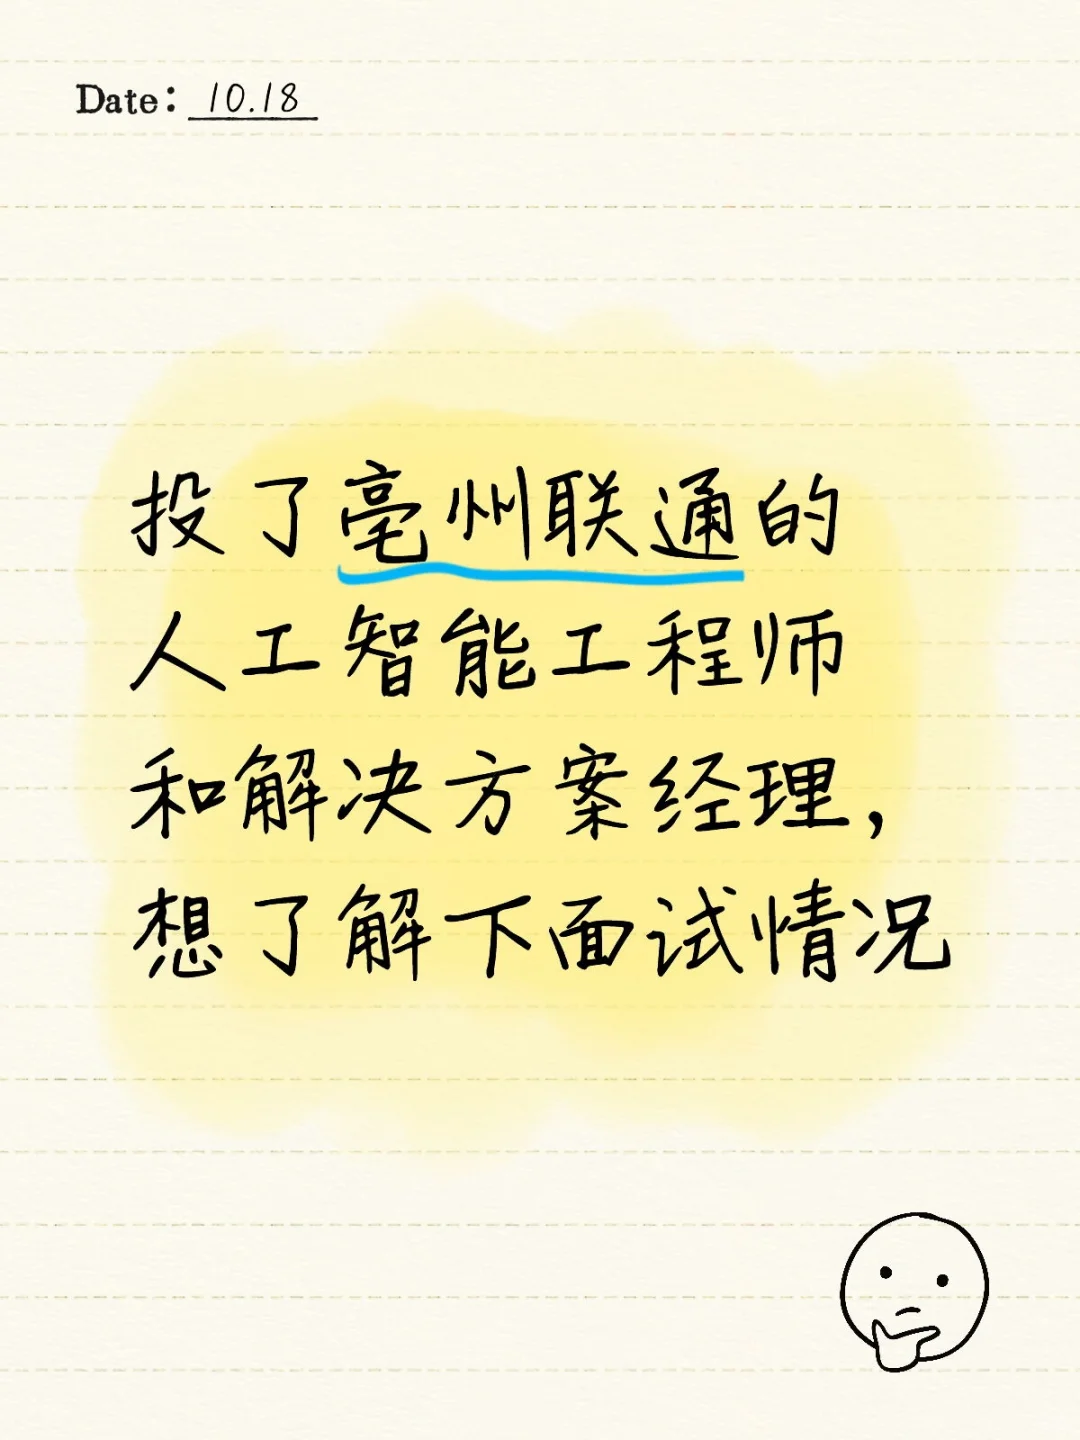 Date: 10.18
投了亳州联通的
人工智能工程师
和解决方案经理,
想了解下面试情况